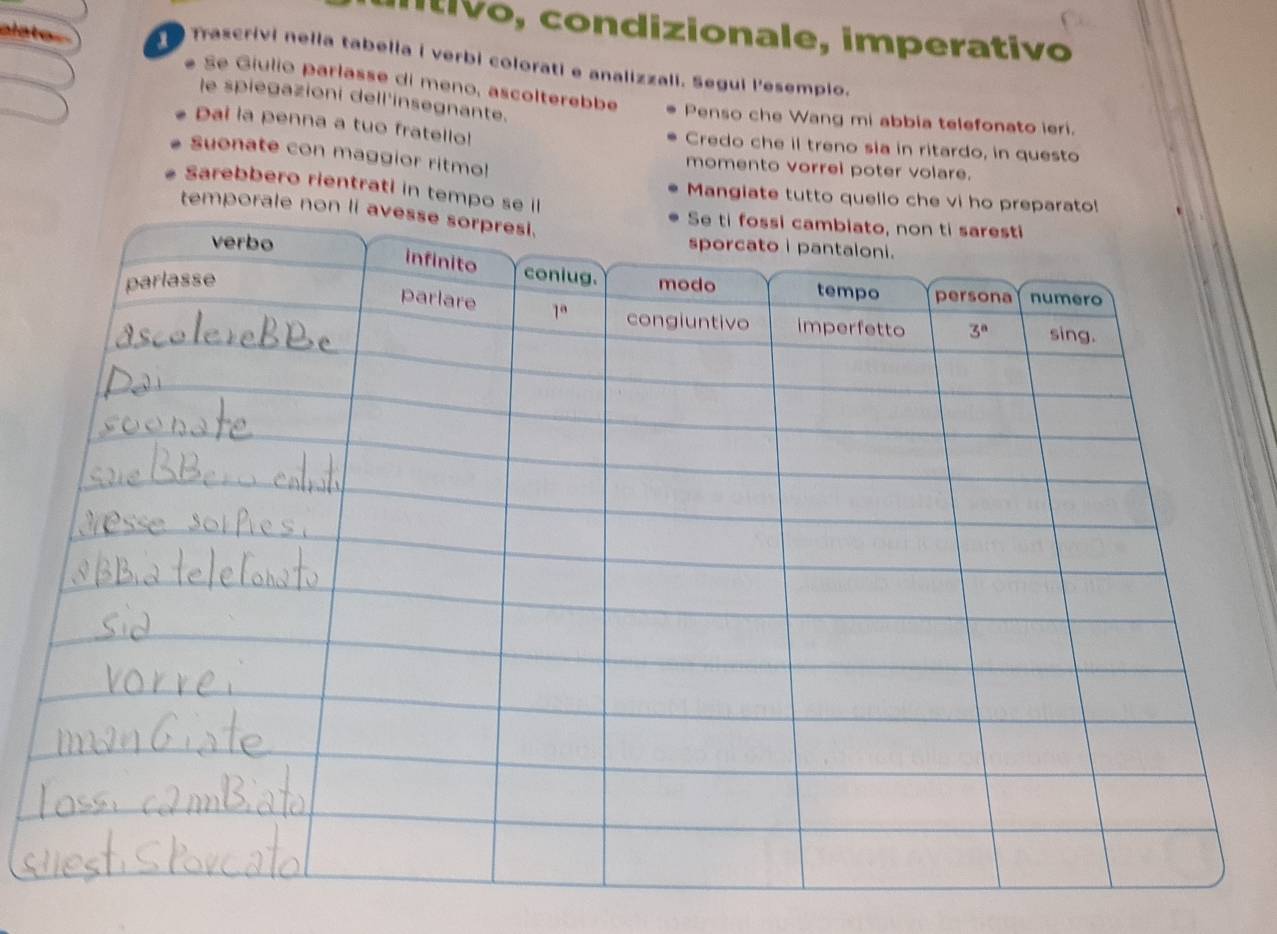 condizionale, imperativo
1 Trascrivi nella tabella i verbi colorati e analizzali. Segui l'esempio.
• Se Giulio parlasse di meno, ascolterebbe
le spiegazioni dell'insegnante.
• Dai la penna a tuo fratello!
• Suonate con maggior ritmo!
• Sarebbero rientrati in tempo se il
temporale non li avesse sorpresi.
• Penso che Wang mi abbia telefonato ieri.
• Credo che il treno sia in ritardo, in questo
momento vorrei poter volare.
• Mangiate tutto quello che vi ho preparato!
• Se ti fossi cambiato, non ti saresti
sporcato i pantaloni.
verbo infinito coniug. modo tempo persona numero
parlasse parlare 1ª congiuntivo imperfetto 3ª sing.
ascolereBBe
Dai
suonate
sareBBero entrati
avesse sorPresi
aBBia telefonato
sia
vorrei
manGiate
fossi camBiato
saresti SPorcato